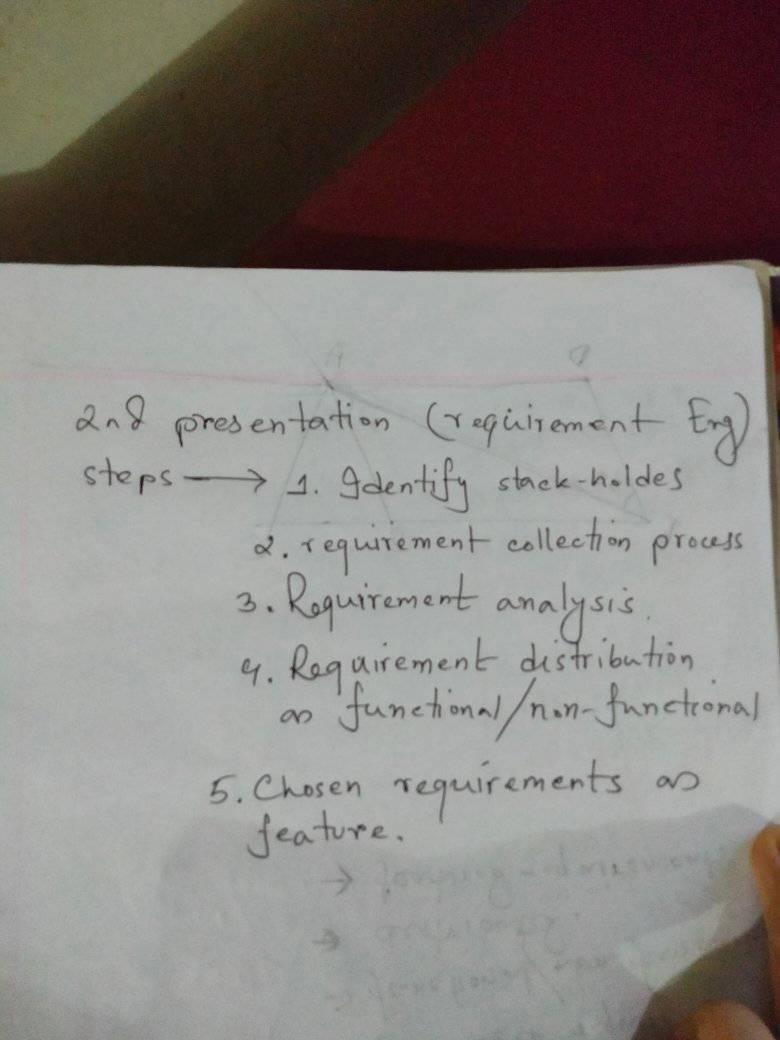 2nd presentation (requirement Eng)
steps → 1. Identify stack-holdes
2. requirement collection process
3. Requirement analysis.
4. Requirement distribution
as functional/non-functional
5. Chosen requirements as
feature.